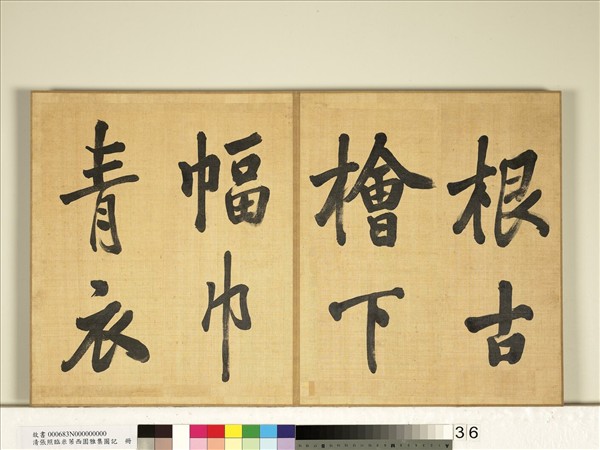 根古
檜下
幅巾
青衣
故書 000683N000000000
清張照臨米芾西園雅集圖記 冊
36